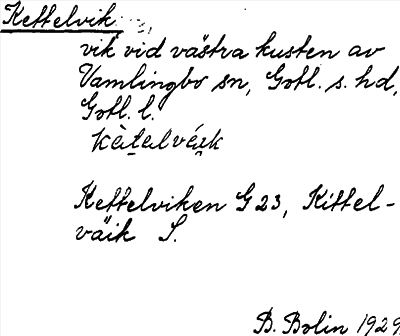 Kettelvik
vik vid västra kusten av
Vamlingbo sn, Gotl. s. hd,
Gotl. l.
Kettelviken G 23, Kittel-
väik S.
B. Bolin 1929